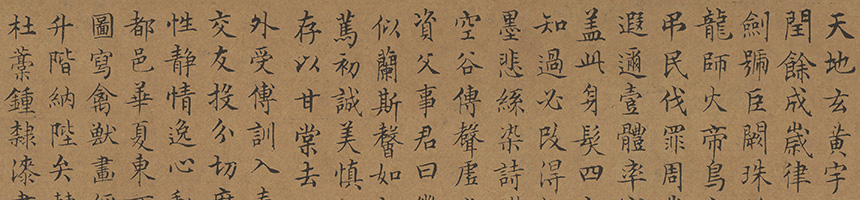 天地玄黃宇
閏餘成歲律
劍號巨闕珠
龍師火帝鳥
弔民伐罪周
遐邇壹體率
盖此身髮四
知過必改得
墨悲絲染詩
空谷傳聲虛
資父事君曰
似蘭斯馨如
篤初誠美慎
存以甘棠去
外受傅訓入
交友投分切
性静情逸心
都邑華夏東
圖寫禽獸畫
升階納陛弁
杜藁鍾隸漆